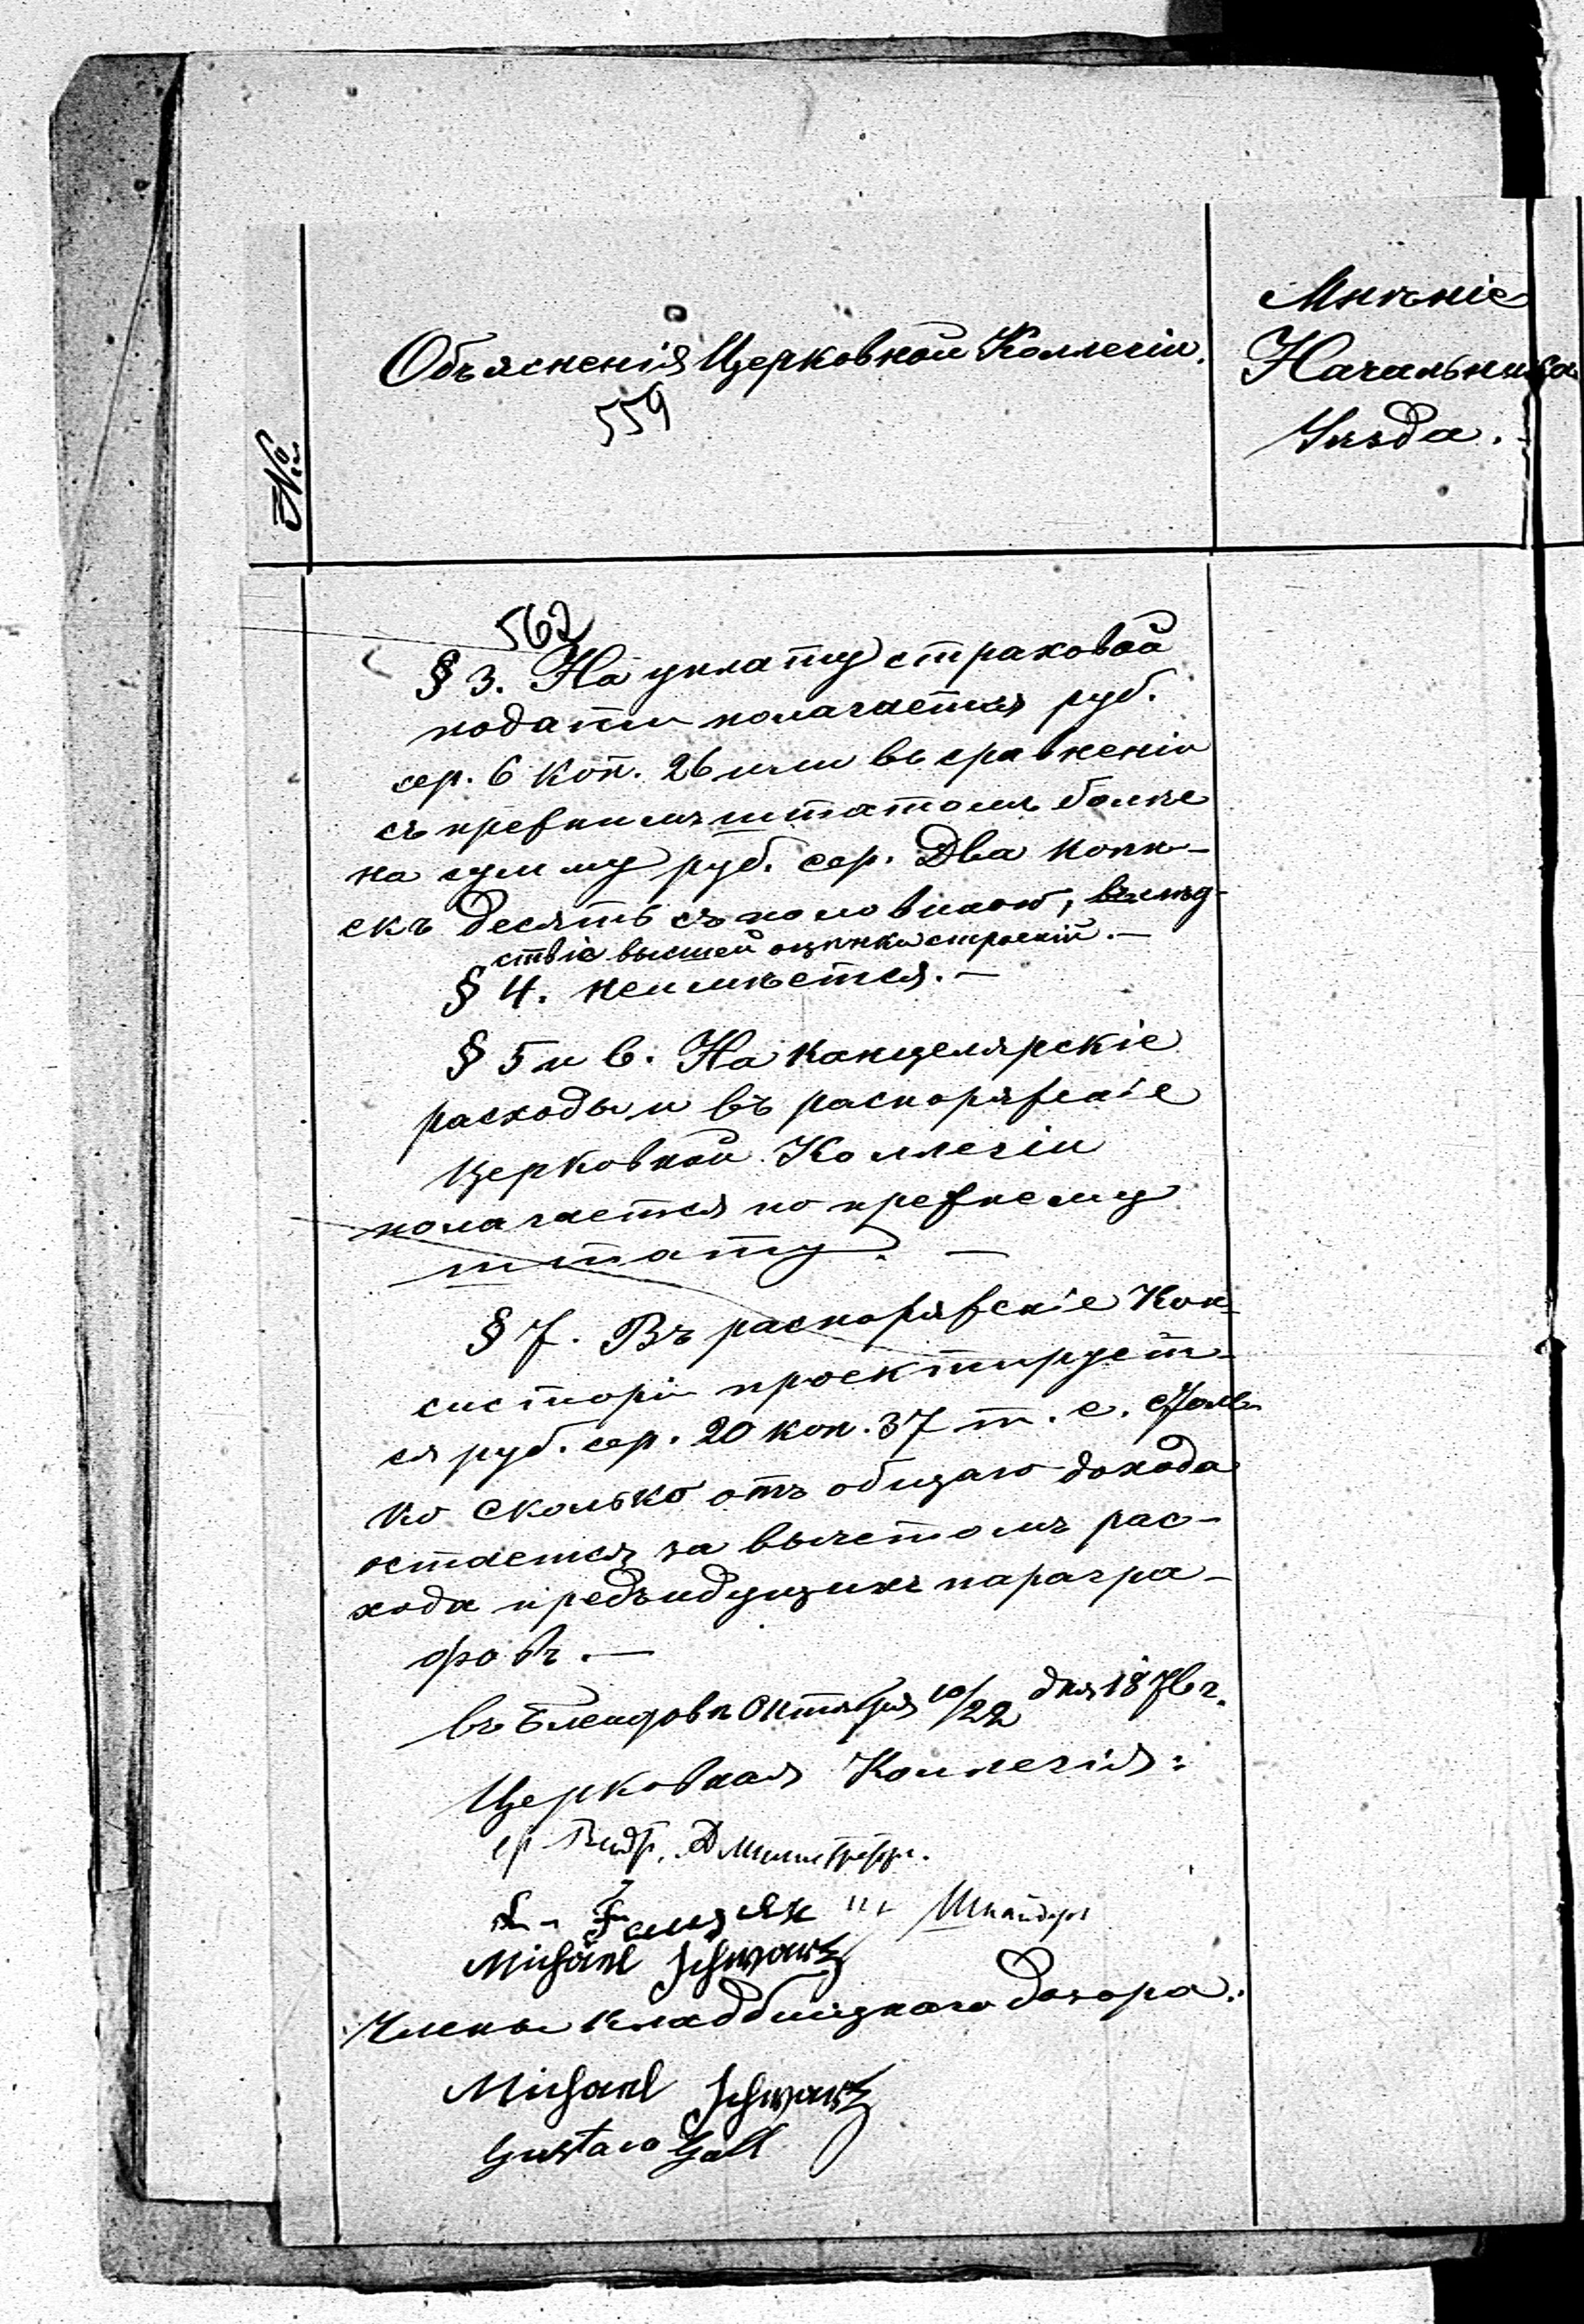 №
Объясненія Церковной Коллегіи.
559
Мнѣніе
Начальника
Уѣзда.
562
§ 3. На уплату страховой
подати полагается руб.
сер. 6 коп. 26 или въ сравненіи
съ прежнимъ штатомъ болѣе
на сумму руб. сер. Два копѣ-
екъ десять съ половиною, вслѣд-
ствіе высшей оцѣнки строеній. —
§ 4. неимѣется. —
§ 5 и 6. На канцелярскіе
расходы и въ распоряженіе
Церковной Коллегіи
полагается по прежнему
штату. —
§ 7. Въ распоряженіе Кон-
систоріи проектирует-
ся руб. сер. 20 коп. 37 т. е. столь
ко сколько отъ общаго дохода
остается за вычетомъ рас-
хода предъидущихъ парагра-
фовъ. —
въ Октября 10/22 дня 1876 г.
Церковная Коллегія:
Michael Schwartz
Члены кладбищнаго дозора:
Michael Schwartz
Gustav Gall